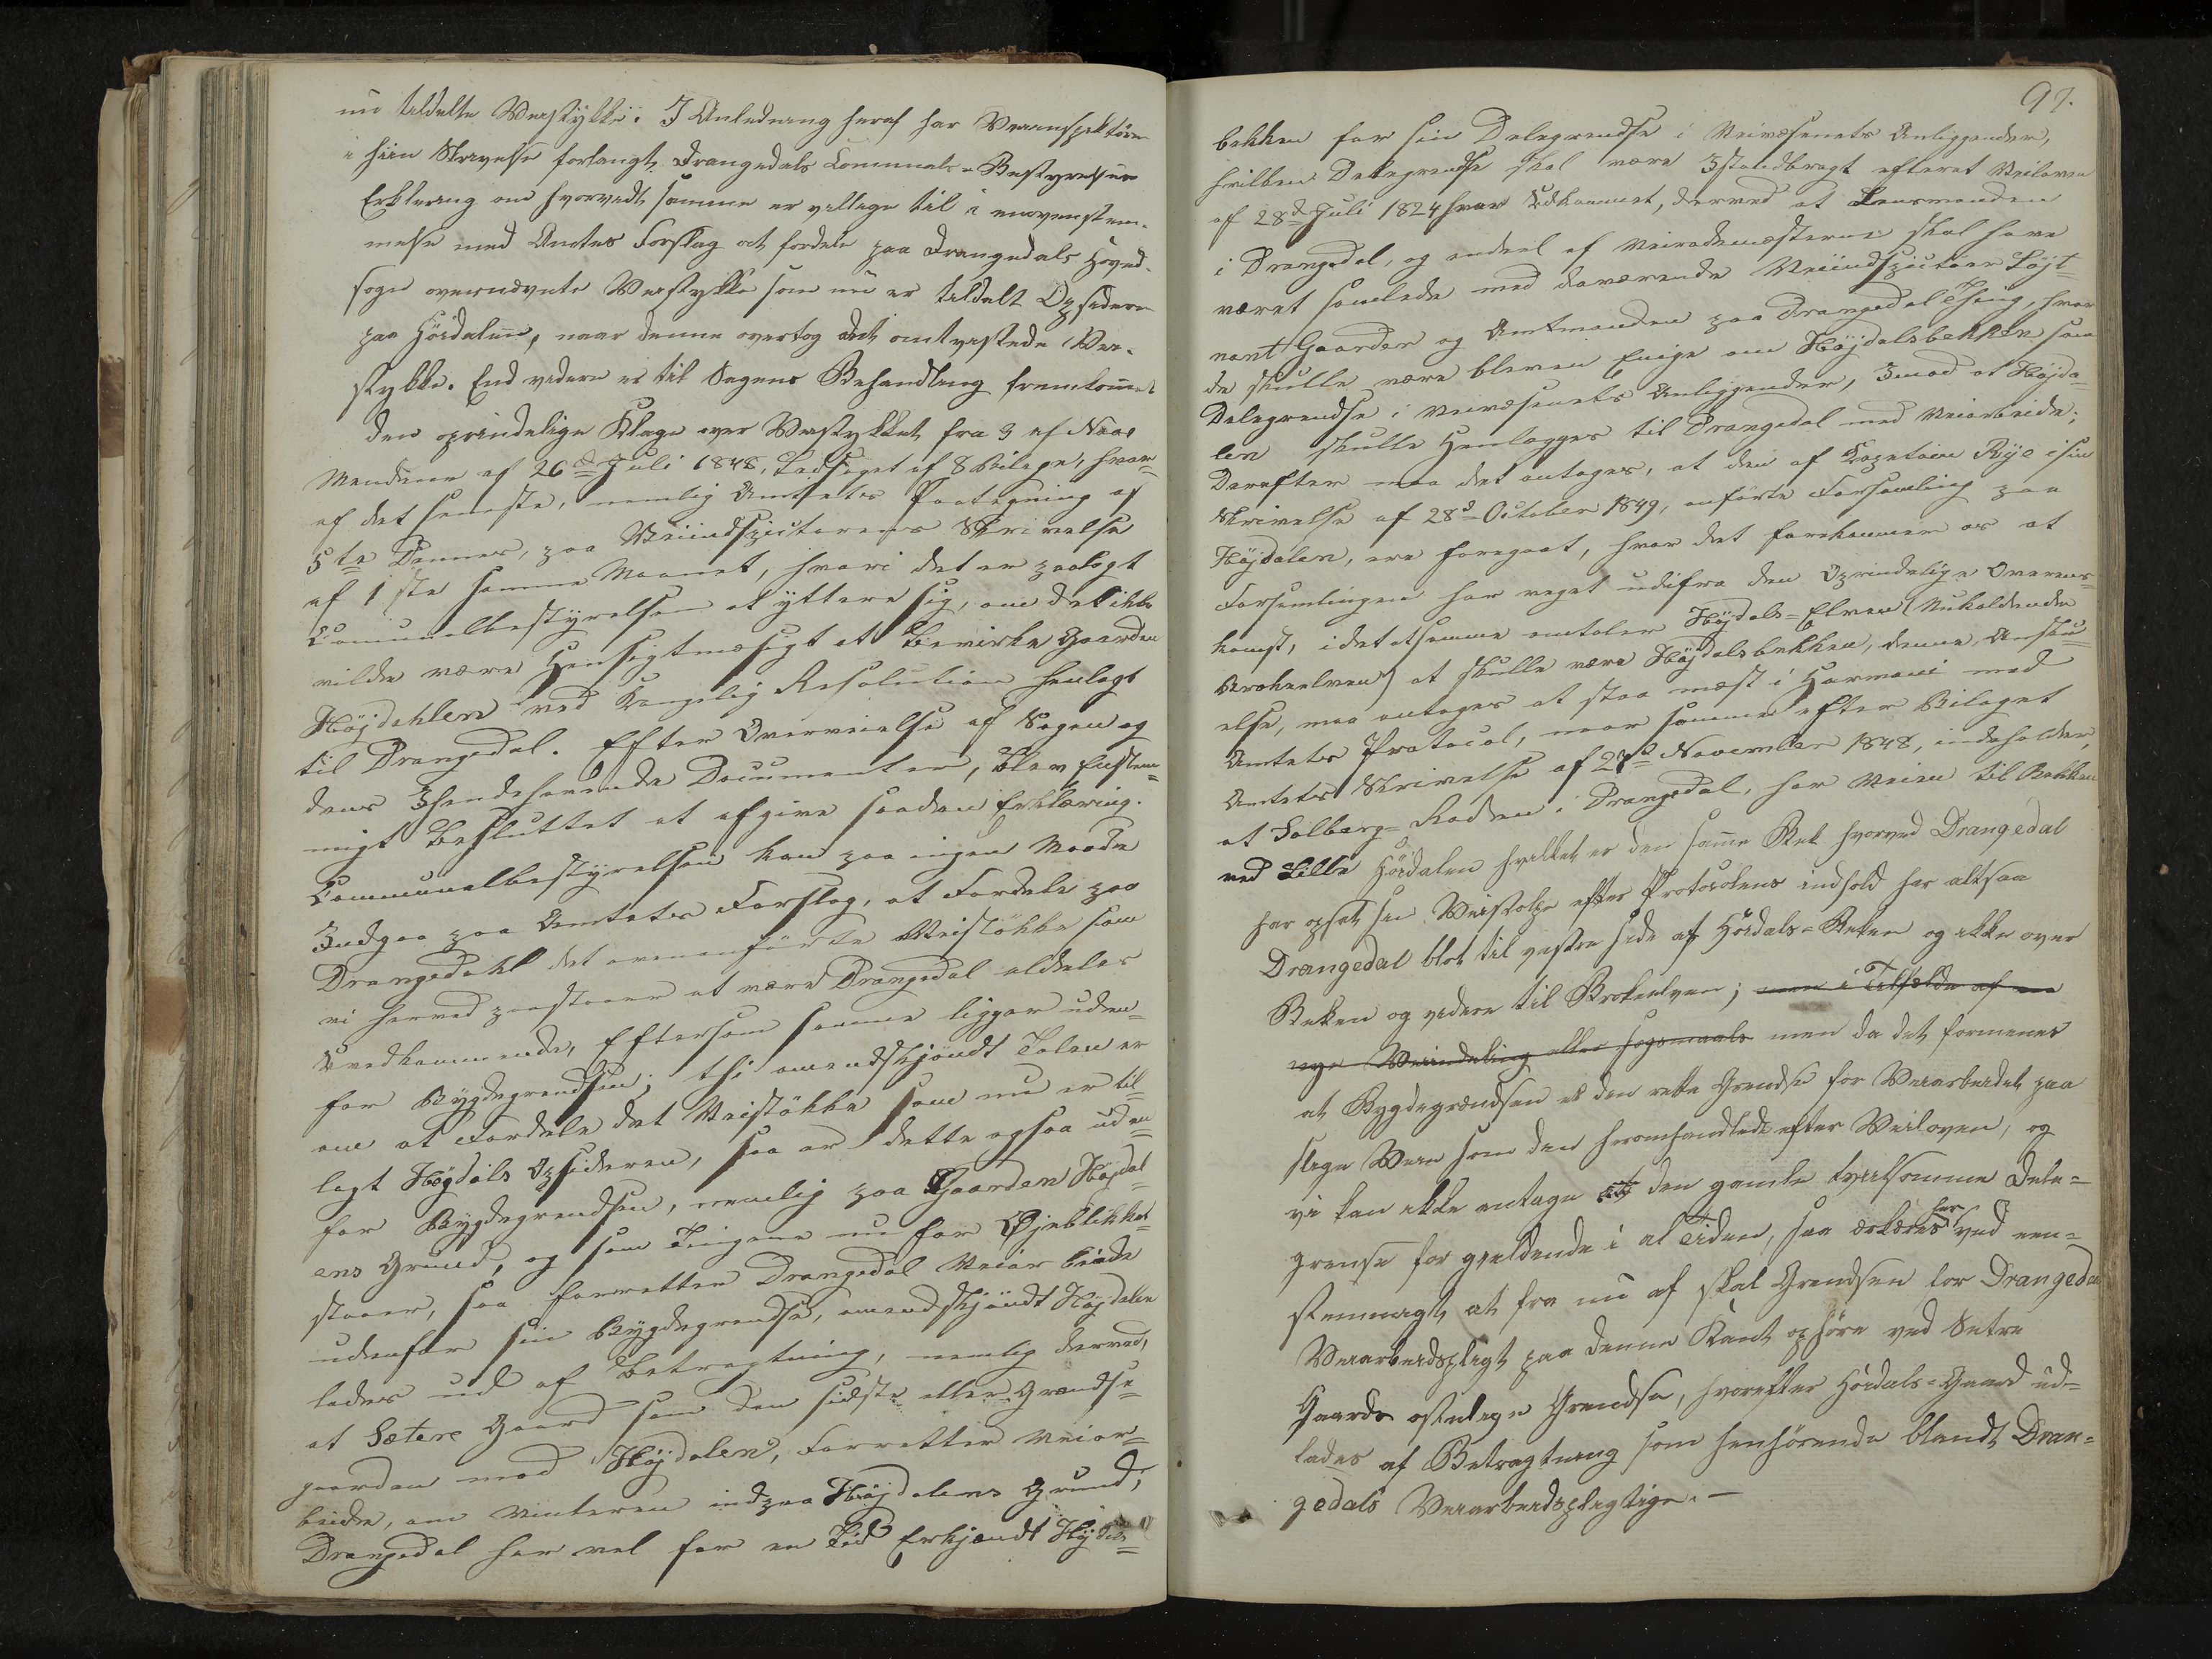 nu tildelte Veistykke. I Anledning heraf har Veiinspektøren
i hiin Skrivelse forlangt Drangedals Communal-Bestyrelses
Erklæring om hvorvidt samme er villige til i overenstem-
melse med Amtets Forslag at fordele paa Drangedals Hoved-
sogn overnævnte Veistykke som nu er tildelt Opsideren
paa Höidalen, naar denne overtog det omtvistede Vei-
stykke. End videre er til Sagens Behandling fremkommet
den oprindelige Klage over Veistykket fra 3 af Næs
Mændene af 26d Juli 1848, Ledsaget af 8 Bilage, hvor-
af det seneste, nemlig Amtets Paategning af
5te Dennes, paa Veiindspectørens Skrivelse
af 1ste samme Maanet, hvori det er paalagt
Communalbestyrelsen at yttere sig, om det ikke
vilde være Hensigtmæsigt at bevirke Gaarden
Höjdahlen ved Kongelig Resolution henlagt
til Drangedal. Efter Overveielse af Sagen og
dens Ihendehavende Documenter, blev Enstem-
migt Besluttet at afgive saadan Erklæring.
Communalbestyrelsen kan paa ingen Maade
Indgaa paa Amtets Forslag, at Fordele paa
Drangedahl det ovenanförte Veistökke som
vi herved paastaaer at være Drangedal aldeles
Uvedkommende, Eftersom samme ligger uden-
for Bygdegrendsen; thi omendskjöndt Talen er
om at Fordele det Veistökke som nu er til-
lagt Höjdals Opsideren, saa er dette ogsaa uden-
for Bygdegrendsen, nemlig paa Gaarden Höjdal-
ens Grund, og som Tingene nu for Öjeblikket
staaer, saa forretter Drangedal Veiarbeide
udenfor sin Bygdegrendse, omendskjöndt Höjdalen
lades ud af Betragtning, nemlig derved,
at Sætere Gaard som den sidste eller Grændse-
gaarden mod Höjdalen, Forretter Veiar-
beide, om Vinteren indpaa Höjdalens Grund;
Drangedal har vel for en Tid Erkjændt Höjdals-
97.
bekken for sin Delegrendse i Veivæsenets Anliggender,
hvilken Delegrendse skal være Istandbragt efterat Veiloven
af 28d Juli 1824 hvar Udkommet, derved at Lensmanden
i Drangedal, og endeel af Veirodemesterne skal have
været samlede med daværende Veiindspecteur Löjt-
nant Gaarder og Amtmanden paa Drangedal Thing, hvor
de skulle være bleven Enige om Höjdalsbekken som
Delegrendse i Veivæsenets Anliggender, Imod at Höjda-
len skulle Henlægges til Drangedal med Veiarbeide;
Derefter maa det antages, at den af Capetain Rye i sin
Skrivelse af 28d October 1849, anförte Forsamling paa
Höjdalen, ere foregaat, hvor det forekommer os at
Forsamlingen har veget udifra den Oprindelige Overens-
komst, idet at samme omtaler Höjdals-Elven (Nukaldende
Brokeelven) at skulle være Höjdalsbekken, denne Anskue-
else, maa antages at staa mest i Harmoni med
Amtets Protocol, naar samme efter Bilaget
Amtets Skrivelse af 27d November 1848, indeholder,
at Solberg-Roden i Drangedal, har Veien til Bekken
ved Lille Höidalen hvilket er den samme Bek hvorved Drangedal
har opsat sin Veistolpe efter Protocolens indhold har altsaa
Drangedal blot til vestre side af Höidals-Bekken og ikke over
Bekken og videre til Brokeelven; men i Tilfælde af en
nye Veiindeling eller sogsmaals men da det formenes
at Bygdegrændsen er den rette Grændse for Veiarbeidet paa
slige Veie som den heromhandlede efter Veiloven, og
vi kan ikke antage den gamle tvilsomme Dele-
grense for gjeldende i al Tiden, saa erklæres her ved een-
stemmigt, at fra nu af skal Grendsen for Drangedals
Veiarbeidspligt paa denne Kant ophöre ved Setre
Gaards östelige Grendse, hvorefter Höidals-Gaard ud-
lades af Betragtning som henhörende blandt Dran-
gedals Veiarbeidspligtige. —